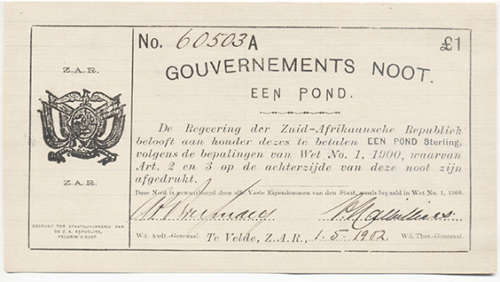 No. 60503A £1
GOUVERNEMENTS NOOT.
EEN POND.
De Regeering der Zuid-Afrikaansche Republiek
belooft aan houder dezes te betalen EEN POND Sterling,
volgens de bepalingen van Wet No. 1, 1900, waarvan
Art. 2 en 3 op de achterzijde van deze noot zijn
afgedrukt.
Deze Noot is gewaarborgd door alle Vaste Eigendommen van den Staat, zooals bepaald in Wet No. 1, 1900.
Wd. Audt.-Generaal. Te Velde, Z.A.R., 1-5-1902 Wd. Thes.-Generaal.
Z.A.R.
Z.A.R.
GEDRUKT TER STAATSDRUKKERIJ VAN
DE Z. A. REPUBLIEK,